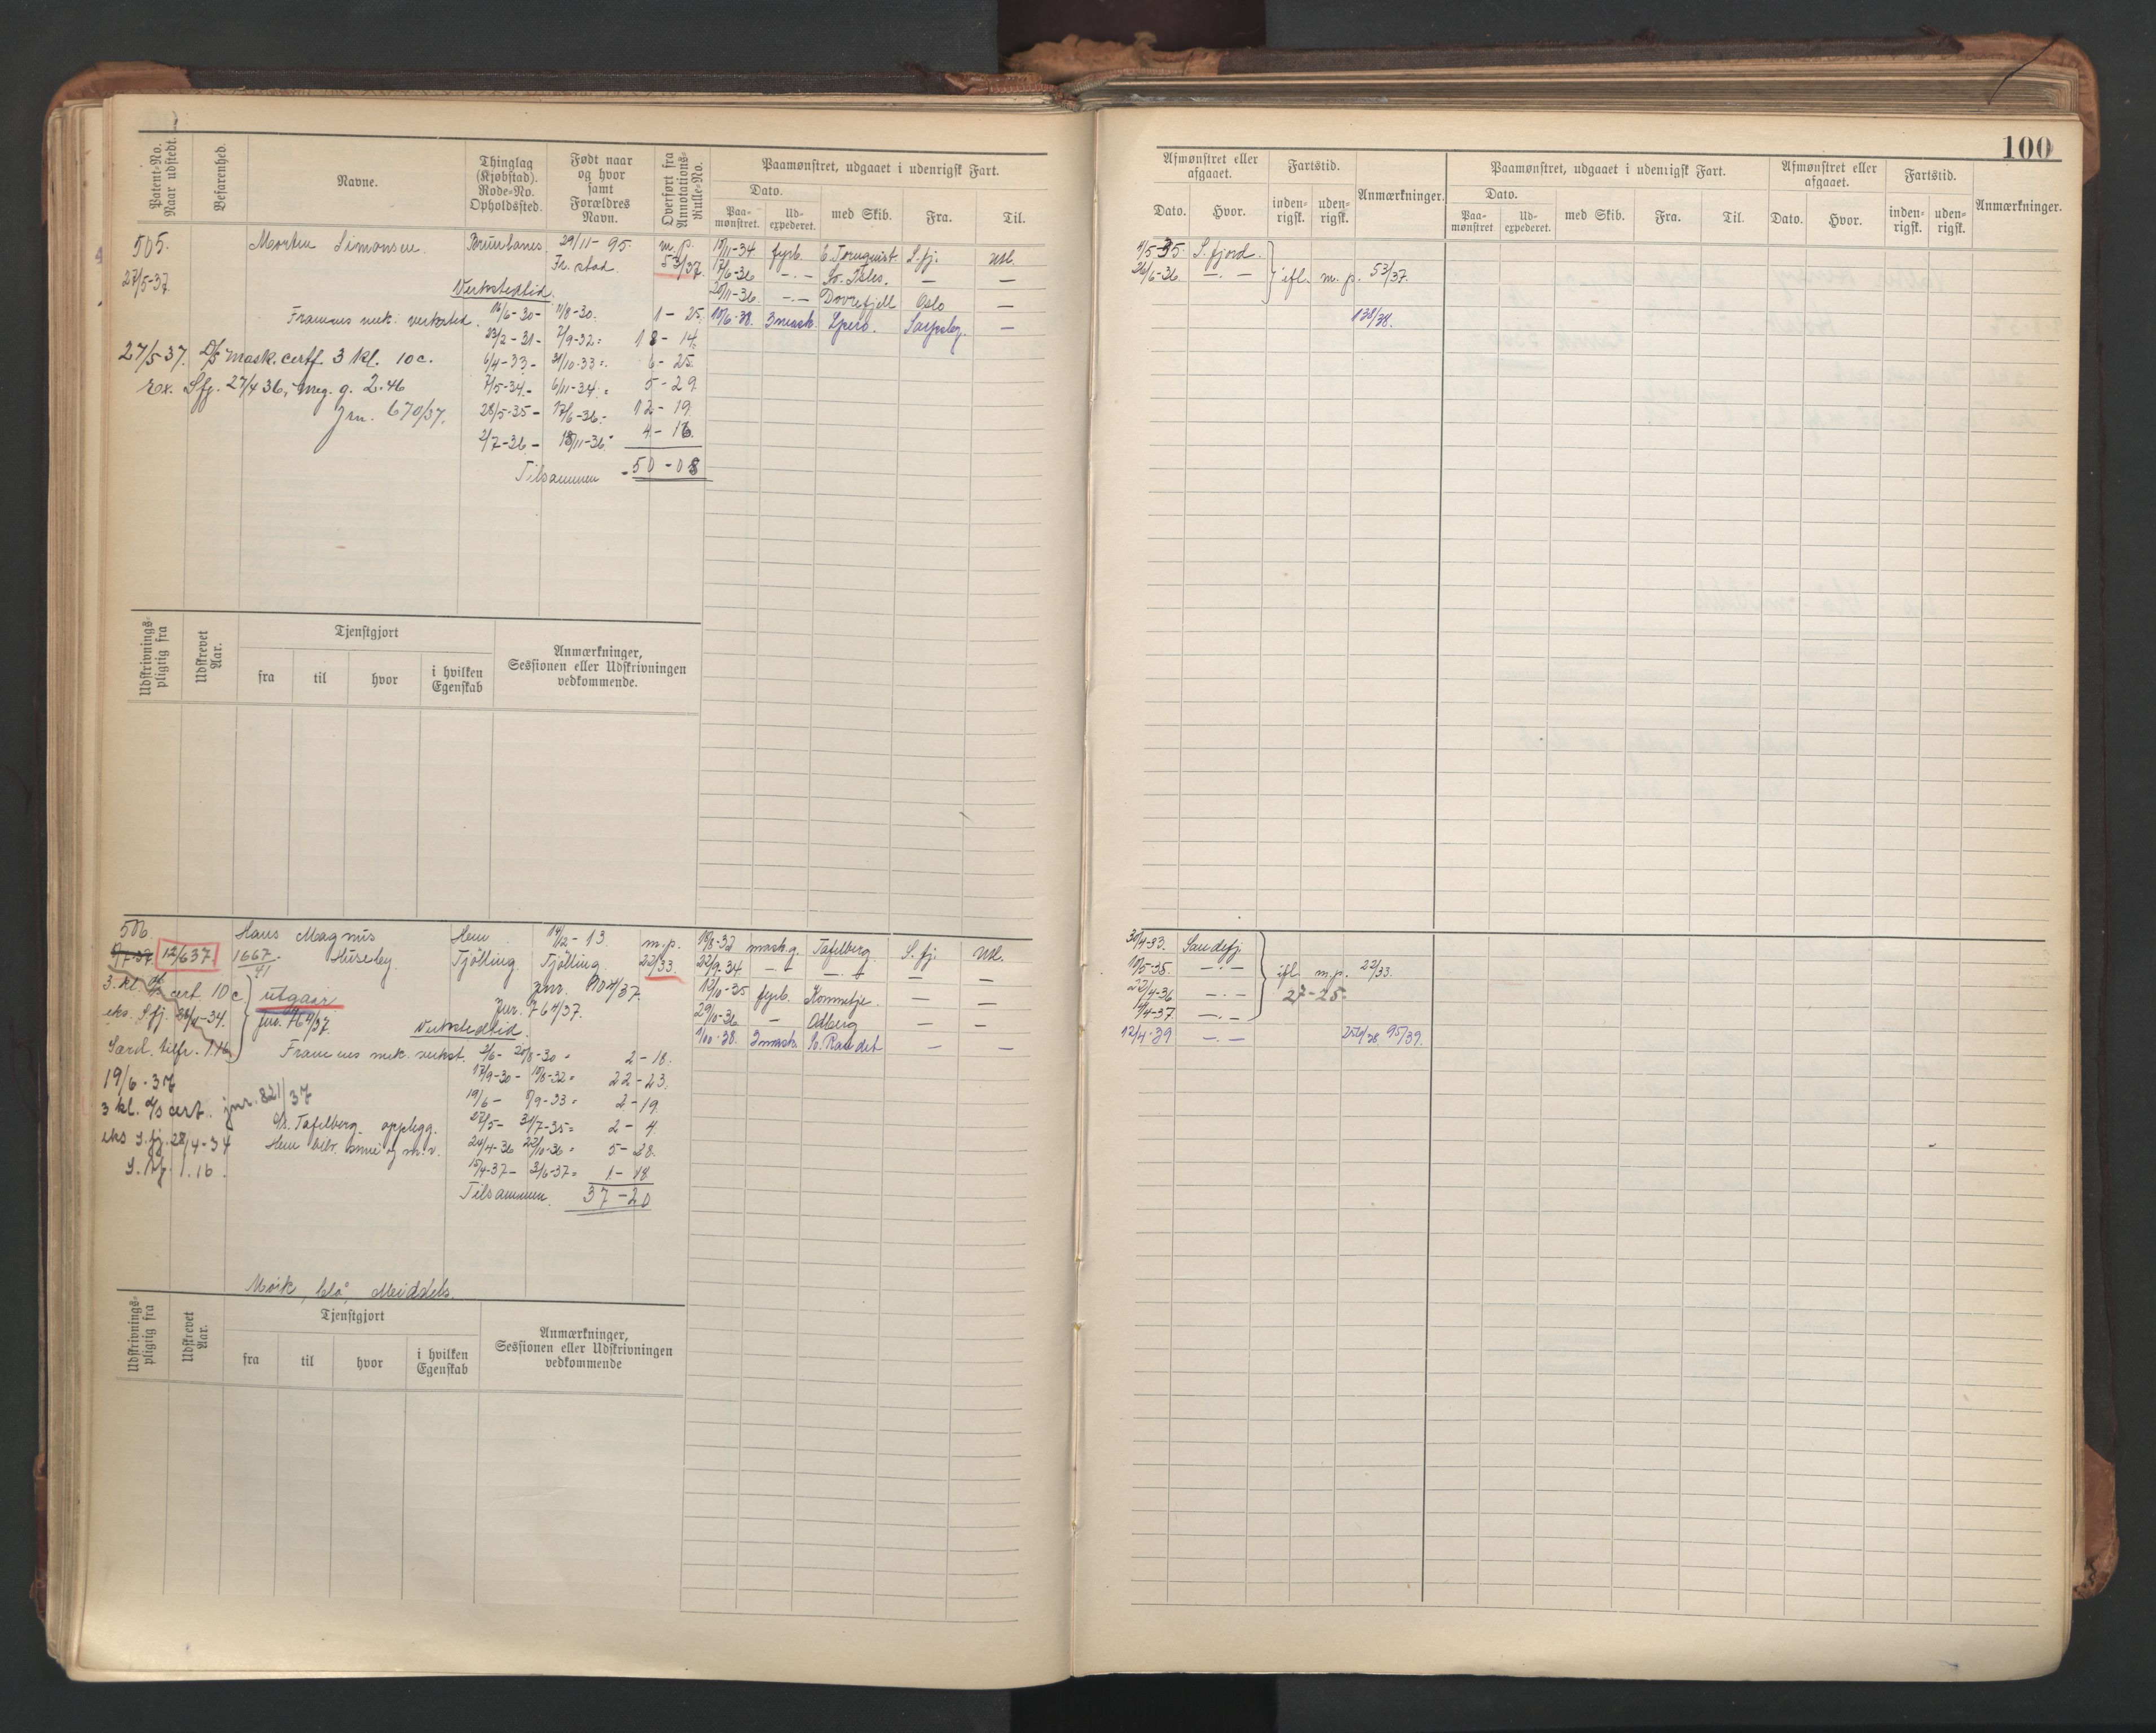 100
Patent-No. Naar udstedt.
Befarenhed.
Navne.
Thinglag (Kjøbstad). Rode-No. Opholdssted.
Født naar og hvor samt Forældres Navn.
Overført fra Annotations-Rulle-No.
Paamønstret, udgaaet i udenrigsk Fart.
Dato.
Paa-mønstret.
Ud-expederet.
med Skib.
Fra.
Til.
Afmønstret eller afgaaet.
Dato.
Hvor.
Fartstid.
inden-rigsk.
uden-rigsk.
Anmærkninger.
Paamønstret, udgaaet i udenrigsk Fart.
Dato.
Paa-mønstret
Ud-expederet.
med Skib.
Fra.
Til.
Afmønstret eller afgaaet.
Dato.
Hvor.
Fartstid.
inden-rigsk.
uden-rigsk.
Anmærkninger.
505. Simonsen. 29/11-95 m.p. 10/11-34 fyrb. C. Tornquist S.fj. Utl.
27/5-37. Fr.stad. 53/37. 17/6-36 -.- So. Isles. — —
Verkstedtid. 20/11-36 -.- Dovrefjell Oslo —
Framnæs mek. verksted. 16/6-30- 11/8-30. 1-25. 10/6-38. 3 mask. Spero. Sarpsbg. —
23/2-31- 2/9-32= 18-14.
27/5 37. D/S mask. certf. 3 kl. 10 c. 6/4-33- 31/10-33= 6-25.
Ex. Sfj. 27/4 36, meg. g. 2.46 7/5-34- 6/11-34= 5-29.
Jrn. 670/37. 28/5-35- 17/6-36- 12-19.
2/7-36- 18/11-36= 4-16.
Tilsammen 50-08
4/5-35. S.fjord.
26/6-36 -.- ifl. m.p. 53/37.
138/38.
Udskrivnings-pligtig fra
Udskrevet Aar.
Tjenstgjort
fra
til
hvor
i hvilken Egenskab
Anmærkninger, Sessionen eller Udskrivningen vedkommende.
506. Hans Magnus Hem 14/2-13. m.p. 18/8-32 mask.g. Tafelberg. S.fj. Utl.
12/6 37. 1667/41 Huseby. Tjölling. Tjölling. 22/33. 22/9-34 — —
3. kl. cert. 10 c utgaar jnr. 704/37. 12/10-35 fyrb. Kommetje. — —
eks. Sfj. 28/4-34. Jnr. 764/37. Jnr. 764/37. 29/10-36 — Odberg — —
Verkstedtid. 3 mask. So. Raudet — —
Særd. tilfr. 1.16 Framnæs mek. verkst. 2/6- 20/8-30= 2-18.
19/6-37 17/9-30- 10/8-32= 22-23.
3 kl. d/s cert. jnr. 821/37 19/6- 8/9-33= 2-19.
Tafelberg opplegg. 27/5- 31/7-35= 2-4.
eks S.fj. 28/4-34 24/4-36 22/10-36= 5-28.
1.16. 15/4-37- 3/6-37= 1-18
Tilsammen. 37-20
Mörk, blå, Middels.
30/4-33. Sandefj.
10/5-35. -.- ifl. m.p. 22/33.
22/4-36 -.- 27-25=
4/4-37. -.-
12/4-39 -.- 95/39.
Udskrivnings-pligtig fra
Udskrevet Aar.
Tjenstgjort
fra
til
hvor
i hvilken Egenskab
Anmærkninger, Sessionen eller Udskrivningen vedkommende